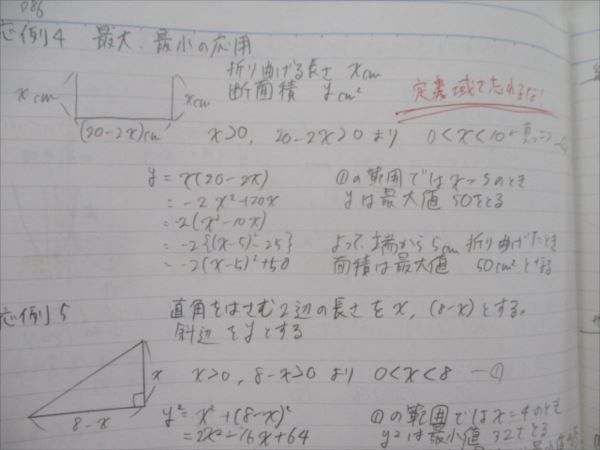 P86
応例4 最大、最小の応用
折り曲げる長さ xcm
断面積 ycm²
定義域を忘れるな!
xcm
xcm
(20-2x)cm
x>0, 20-2x>0 より 0<x<10
y = x(20-2x)
= -2x²+20x
= -2(x²-10x)
= -2{(x-5)²-25}
= -2(x-5)²+50
①の範囲では x=5のとき
yは最大値 50をとる
よって、端から5cm 折り曲げたとき
面積は最大値 50cm² となる
応例5 直角をはさむ2辺の長さをx, (8-x)とする。
斜辺をyとする
x
8-x
x>0, 8-x>0 より 0<x<8 ー①
y² = x²+(8-x)²
= 2x²-16x+64
①の範囲では x=4のとき
y²は最小値 32をとる